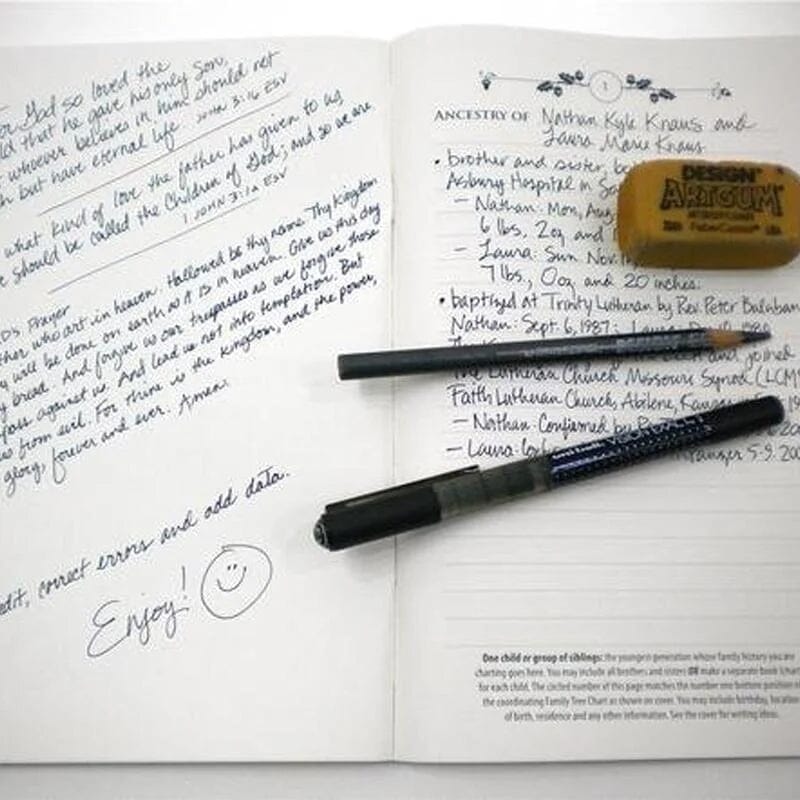 God so loved the
that he gave his only Son,
whoever believes in him should not
but have eternal life JOHN 3:16 ESV
what kind of love the father has given to us,
should be called the Children of God; and so we are
1 JOHN 3:1a ESV
Prayer
who art in heaven. Hallowed be thy name. Thy Kingdom
will be done on earth as it is in heaven. Give us this day
bread. And forgive us our trespasses as we forgive those
against us. And lead us not into temptation. But
us from evil. For thine is the kingdom, and the power,
glory, forever and ever. Amen.
edit, correct errors and add data.
Enjoy!
1
ANCESTRY OF Nathan Kyle Knaus and
Laura Marie Knaus
• brother and sister,
Asbury Hospital in
– Nathan: Mon, Aug
6 lbs, 2oz, and
– Laura: Sun Nov
7 lbs, 0oz, and 20 inches.
• baptized at Trinity Lutheran by Rev. Peter
Nathan: Sept. 6, 1987;
and joined
The Lutheran Church Missouri Synod
Faith Lutheran Church, Abilene,
– Nathan: Confirmed by
– Laura: 5-9
DESIGN
ARTGUM
One child or group of siblings: the youngest generation whose family history you are
charting goes here. You may include all brothers and sisters OR make a separate book
for each child. The circled number of this page matches the number one bottom position
the coordinating Family Tree Chart as shown on cover. You may include birthday, location
of birth, residence and any other information. See the cover for writing ideas.